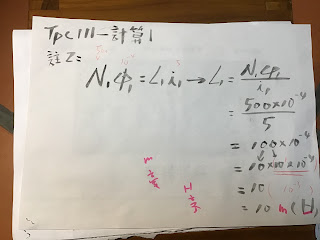 TPC111-計算1
註2:
N₁φ₁=L₁i₁→L₁=N₁φ₁/i₁
=500×10⁻⁴/5
=100×10⁻⁴
=10×10×10⁻⁴
=10
=10 m(H)